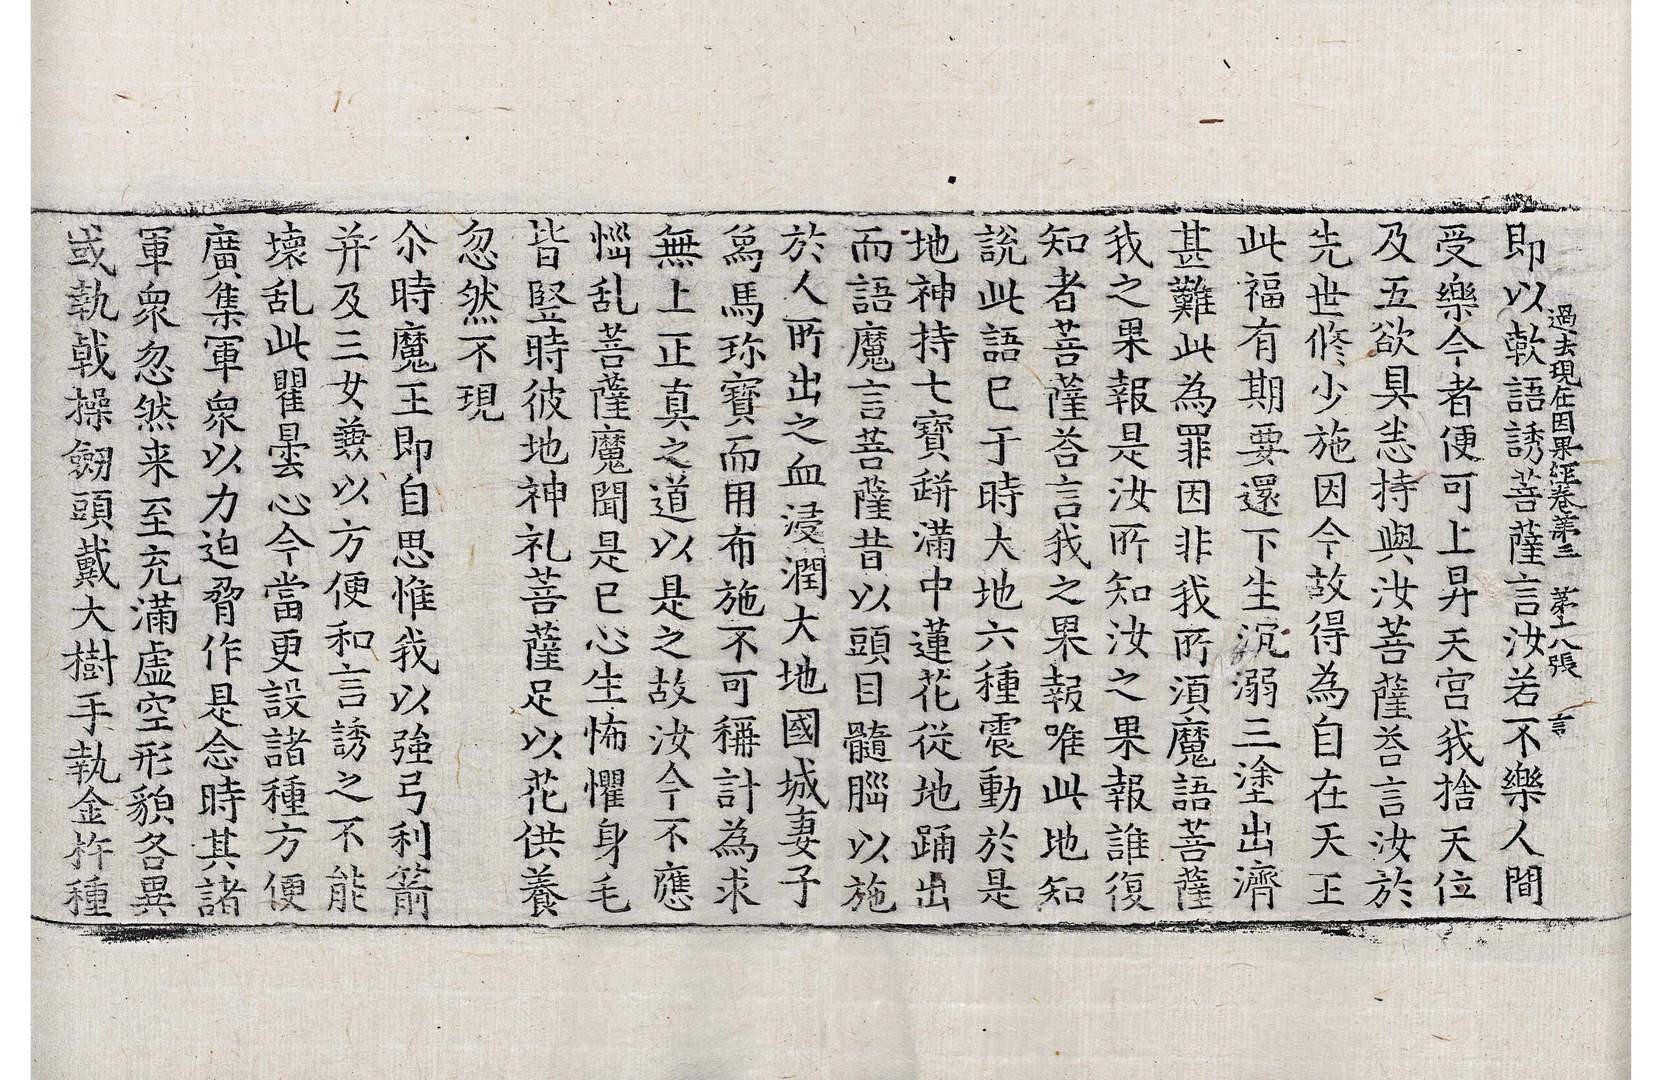 即以軟語誘菩薩言汝若不樂人間
過去現在因果經卷第三　第十八張　言
受樂今者便可上昇天宮我捨天位
及五欲具悉持與汝菩薩荅言汝於
先世修少施因今故得為自在天王
此福有期要還下生沉溺三塗出濟
甚難此為罪因非我所須魔語菩薩
我之果報是汝所知汝之果報誰復
知者菩薩荅言我之果報唯此地知
說此語已于時大地六種震動於是
地神持七寶缾滿中蓮花從地踊出
而語魔言菩薩昔以頭目髓腦以施
於人所出之血浸潤大地國城妻子
爲馬珎寶而用布施不可稱計為求
無上正真之道以是之故汝今不應
惱乱菩薩魔聞是已心生怖懼身毛
皆竪時彼地神礼菩薩足以花供養
忽然不現
尒時魔王即自思惟我以強弓利箭
并及三女兼以方便和言誘之不能
壞乱此瞿曇心今當更設諸種方便
廣集軍衆以力迫脅作是念時其諸
軍衆忽然来至充滿虛空形貌各異
或執戟操劒頭戴大樹手執金杵種